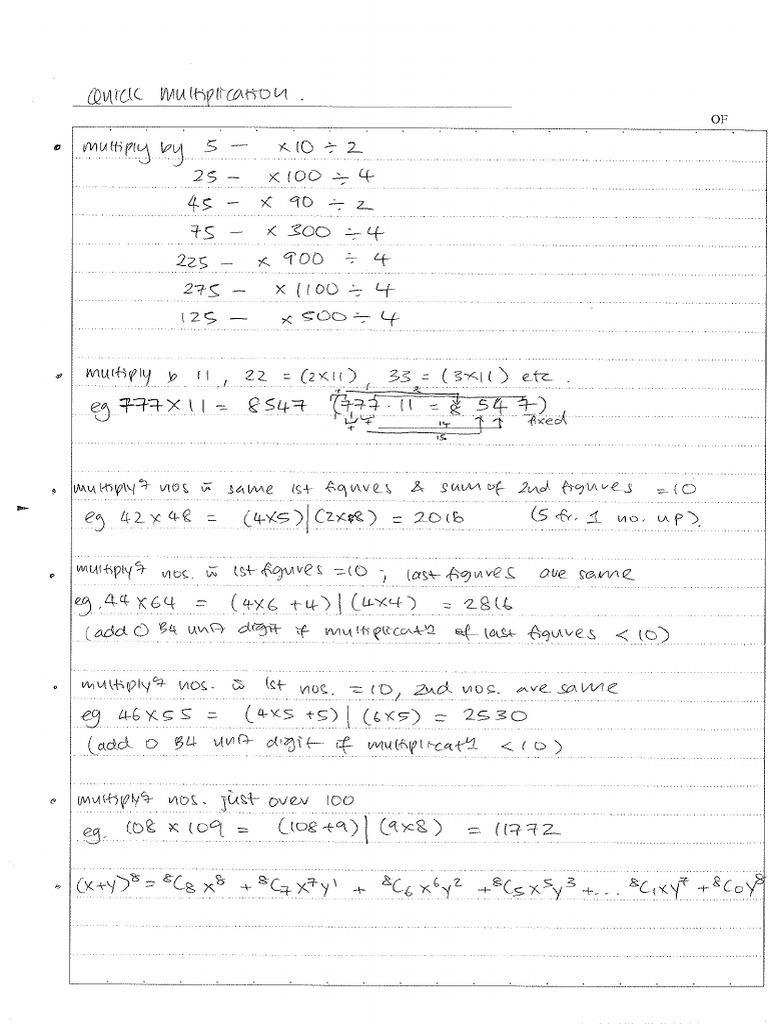 Quick Multiplication.
OF
• multiply by 5 — ×10 ÷ 2
25 — ×100 ÷ 4
45 — × 90 ÷ 2
75 — × 300 ÷ 4
225 — × 900 ÷ 4
275 — × 1100 ÷ 4
125 — × 500 ÷ 4
• multiply b 11, 22 = (2×11), 33 = (3×11) etc.
eg 777×11 = 8547 (777·11 = 8 54 7)
14
fixed
15
• multiplyg nos w̄ same 1st figures & sum of 2nd figures = 10
eg 42×48 = (4×5)|(2×8) = 2016 (5 fr. 1 no. up).
• multiplyg nos. w̄ 1st figures = 10; last figures are same
eg. 44×64 = (4×6 +4)|(4×4) = 2816
(add 0 B4 unit digit if multiplicatn of last figures < 10)
• multiplyg nos. w̄ 1st nos. = 10, 2nd nos. are same
eg 46×55 = (4×5 +5)|(6×5) = 2530
(add 0 B4 unit digit if multiplicatn < 10)
• multiplyg nos. just over 100
eg. 108 × 109 = (108+9)|(9×8) = 11772
• (x+y)⁸ = ⁸C₈x⁸ + ⁸C₇x⁷y¹ + ⁸C₆x⁶y² + ⁸C₅x⁵y³ + ... ⁸C₁xy⁷ + ⁸C₀y⁸